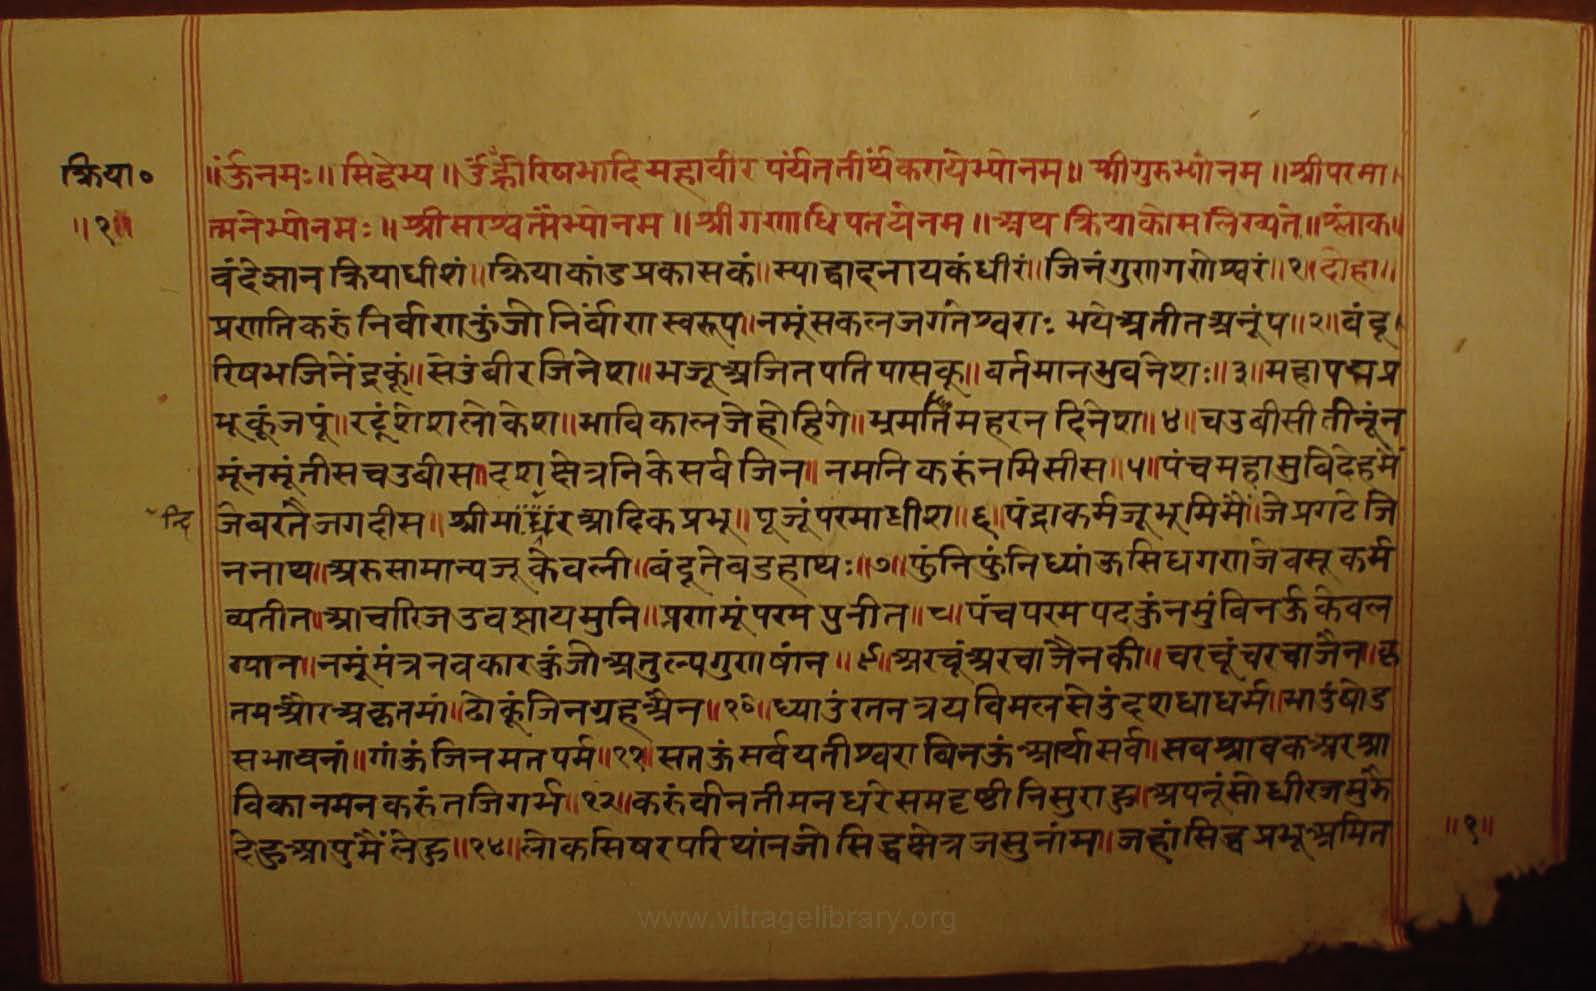 क्रिया०
॥१॥
॥ॐनमः॥सिद्धेभ्य॥ॐह्रीरिषभादिमहावीरपर्यंततीर्थंकरायेभ्योनम॥श्रीगुरुभ्योनम॥श्रीपरमा
त्मनेभ्योनमः॥श्रीसरश्वत्यैभ्योनम॥श्रीगणाधिपतयेनम॥अथक्रियाकोसलिख्यते॥श्लोक॥
वंदेज्ञानक्रियाधीशं॥क्रियाकांडप्रकासकं॥स्याद्वादनायकंधीरं॥जिनंगुणगणेश्वरं॥१॥दोहा॥
प्रणतिकरुंनिर्वाणकुंजोनिर्वाणस्वरूप॥नमूंसकलजगतेश्वराःभयेअतीतअनूंप॥२॥बंदू
रिषभजिनेंद्रकूं॥सेउंबीरजिनेश॥भजूअजितपतिपासकू॥वर्तमानभुवनेशः॥३॥महापद्मप्र
भूकूंजपूं॥रटूंशेशलोकेश॥भाविकालजेहोहिगे॥भ्रमतिमहरनदिनेश॥४॥चउबीसीतीनूंन
मूंनमूंतीसचउबीस॥दशक्षेत्रनिकेसर्वजिन॥नमनिकरुंनमिसीस॥५॥पंचमहासुबिदेहमैं
न्दि
जेबरतैजगदीस॥श्रीमांधरआदिकप्रभू॥पूजूंपरमाधीश॥६॥पंद्राकर्मजूभूमिमैं॥जेप्रगटेजि
ननाथ॥अरुसामान्यजूकेवली॥बंदूतेवडहाथः॥७॥फुंनिफुंनिध्यांऊसिधगणजेवसूकर्म
व्यतीत॥आचारिजउवझायमुनि॥प्रणमूंपरमपुनीत॥८॥पंचपरमपदकुंनमुंबिनऊंकेवल
ग्यान॥नमूंमंत्रनवकारकुंजोअतुल्पगुणषांन॥९॥अरचूंअरचाजैनकी॥चरचूंचरचाजैन॥कृ
तमऔरअकृतमां॥ढोकूंजिनग्रहअैन॥१०॥ध्याउंरतनत्रयविमलसेउंदशधाधर्म॥भाउंषोड
सभावनां॥गांऊंजिनमतपर्म॥११॥सतऊंसर्वयतीश्वराबिनऊंआर्यासर्व॥सवश्रावकअरश्रा
विकानमनकरुंतजिगर्भ॥१२॥करुंवीनतीमनधरेसमदृष्टीनिसुराहु॥अपनूंसोधीरजमुंफै
देहुआपुमैंलेहु॥१४॥लोकसिषरपरियांनजोसिद्धक्षेत्रजसुनांम॥जहांसिद्धप्रभूअमित
॥१॥
www.vitragelibrary.org